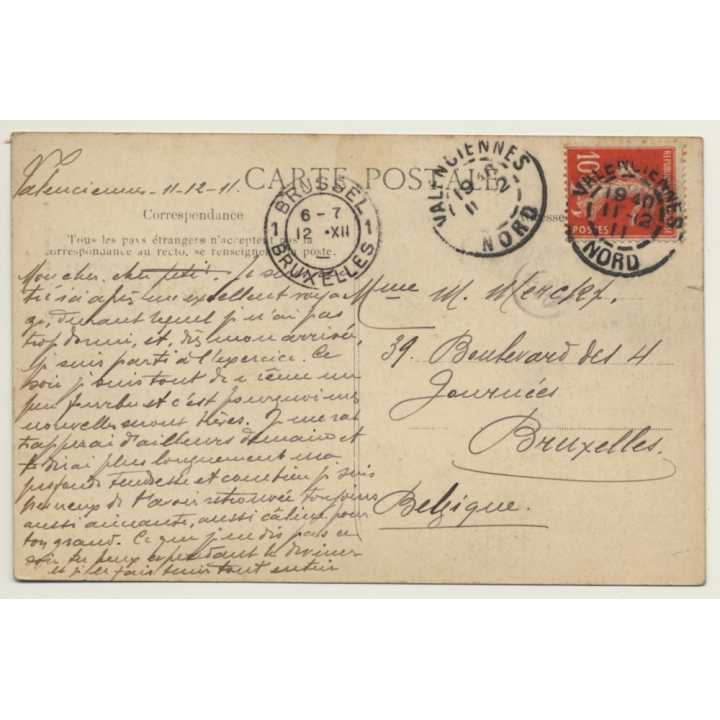 Valenciennes - 11-12-11.
CARTE POSTALE
Correspondance
Tous les pays étrangers n'acceptent pas la
correspondance au recto, se renseigner à la poste.
Mon cher petit! Je suis
ici après un excellent voya
ge, durant lequel je n'ai pas
trop dormi, et, dès mon arrivée,
je suis parti à l'exercice. Ce
soir je suis tout de même un
peu fourbu et c'est pourquoi mes
nouvelles seront brèves. Je me rat
trapperai d'ailleurs demain et
te dirai plus longuement ma
profonde tendresse et combien je suis
heureux de t'avoir retrouvée toujours
aussi aimante, aussi câline pour
ton grand. Ce que je ne dis pas ce
soir tu peux cependant le deviner
et je le fais tout entier
BRUSSEL
1 6-7 1
12 XII
BRUXELLES
VALENCIENNES
19 40
11 12
11
NORD
10
POSTES
VALENCIENNES
19 40
11 12
11
NORD
Mme M. Merckx.
39. Boulevard des 4
Journées
Bruxelles.
Belgique.